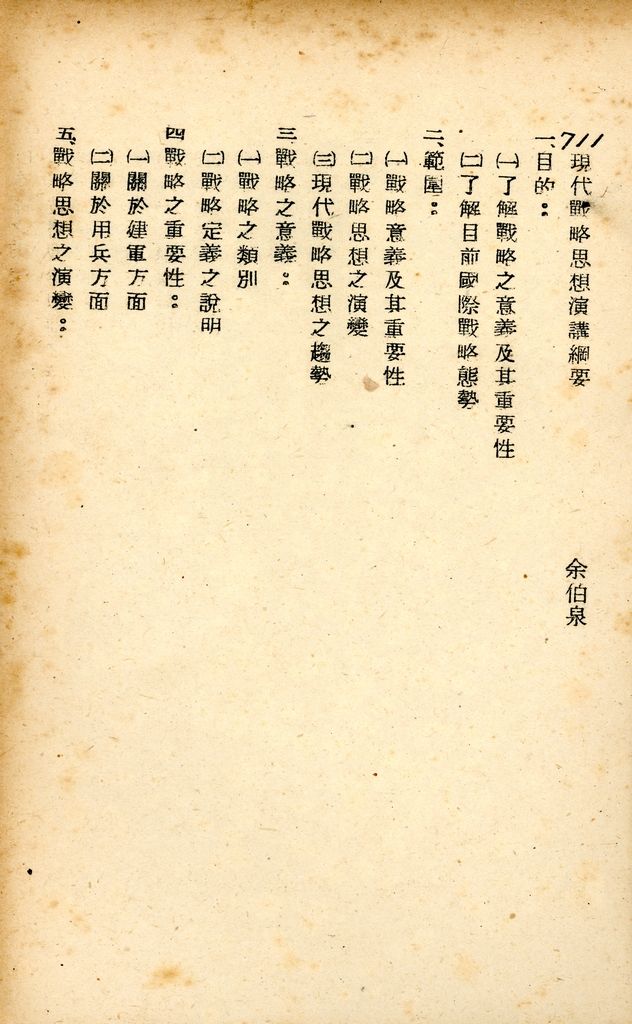 711
現代戰略思想演講綱要
余伯泉
一、目的：
㈠了解戰略之意義及其重要性
㈡了解目前國際戰略態勢
二、範圍：
㈠戰略意義及其重要性
㈡戰略思想之演變
㈢現代戰略思想之趨勢
三、戰略之意義：
㈠戰略之類別
㈡戰略定義之說明
四、戰略之重要性：
㈠關於建軍方面
㈡關於用兵方面
五、戰略思想之演變：